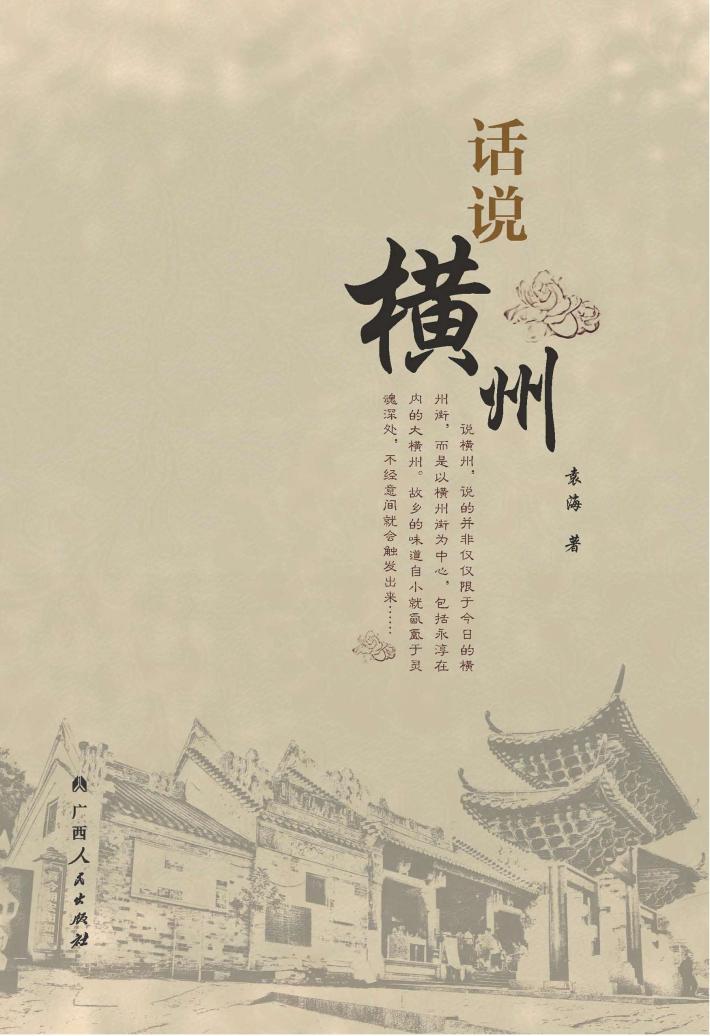 话说
横州
袁海 著
说横州，说的并非仅仅限于今日的横
州街，而是以横州街为中心，包括永淳在
内的大横州。故乡的味道自小就氤氲于灵
魂深处，不经意间就会触发出来……
广西人民出版社